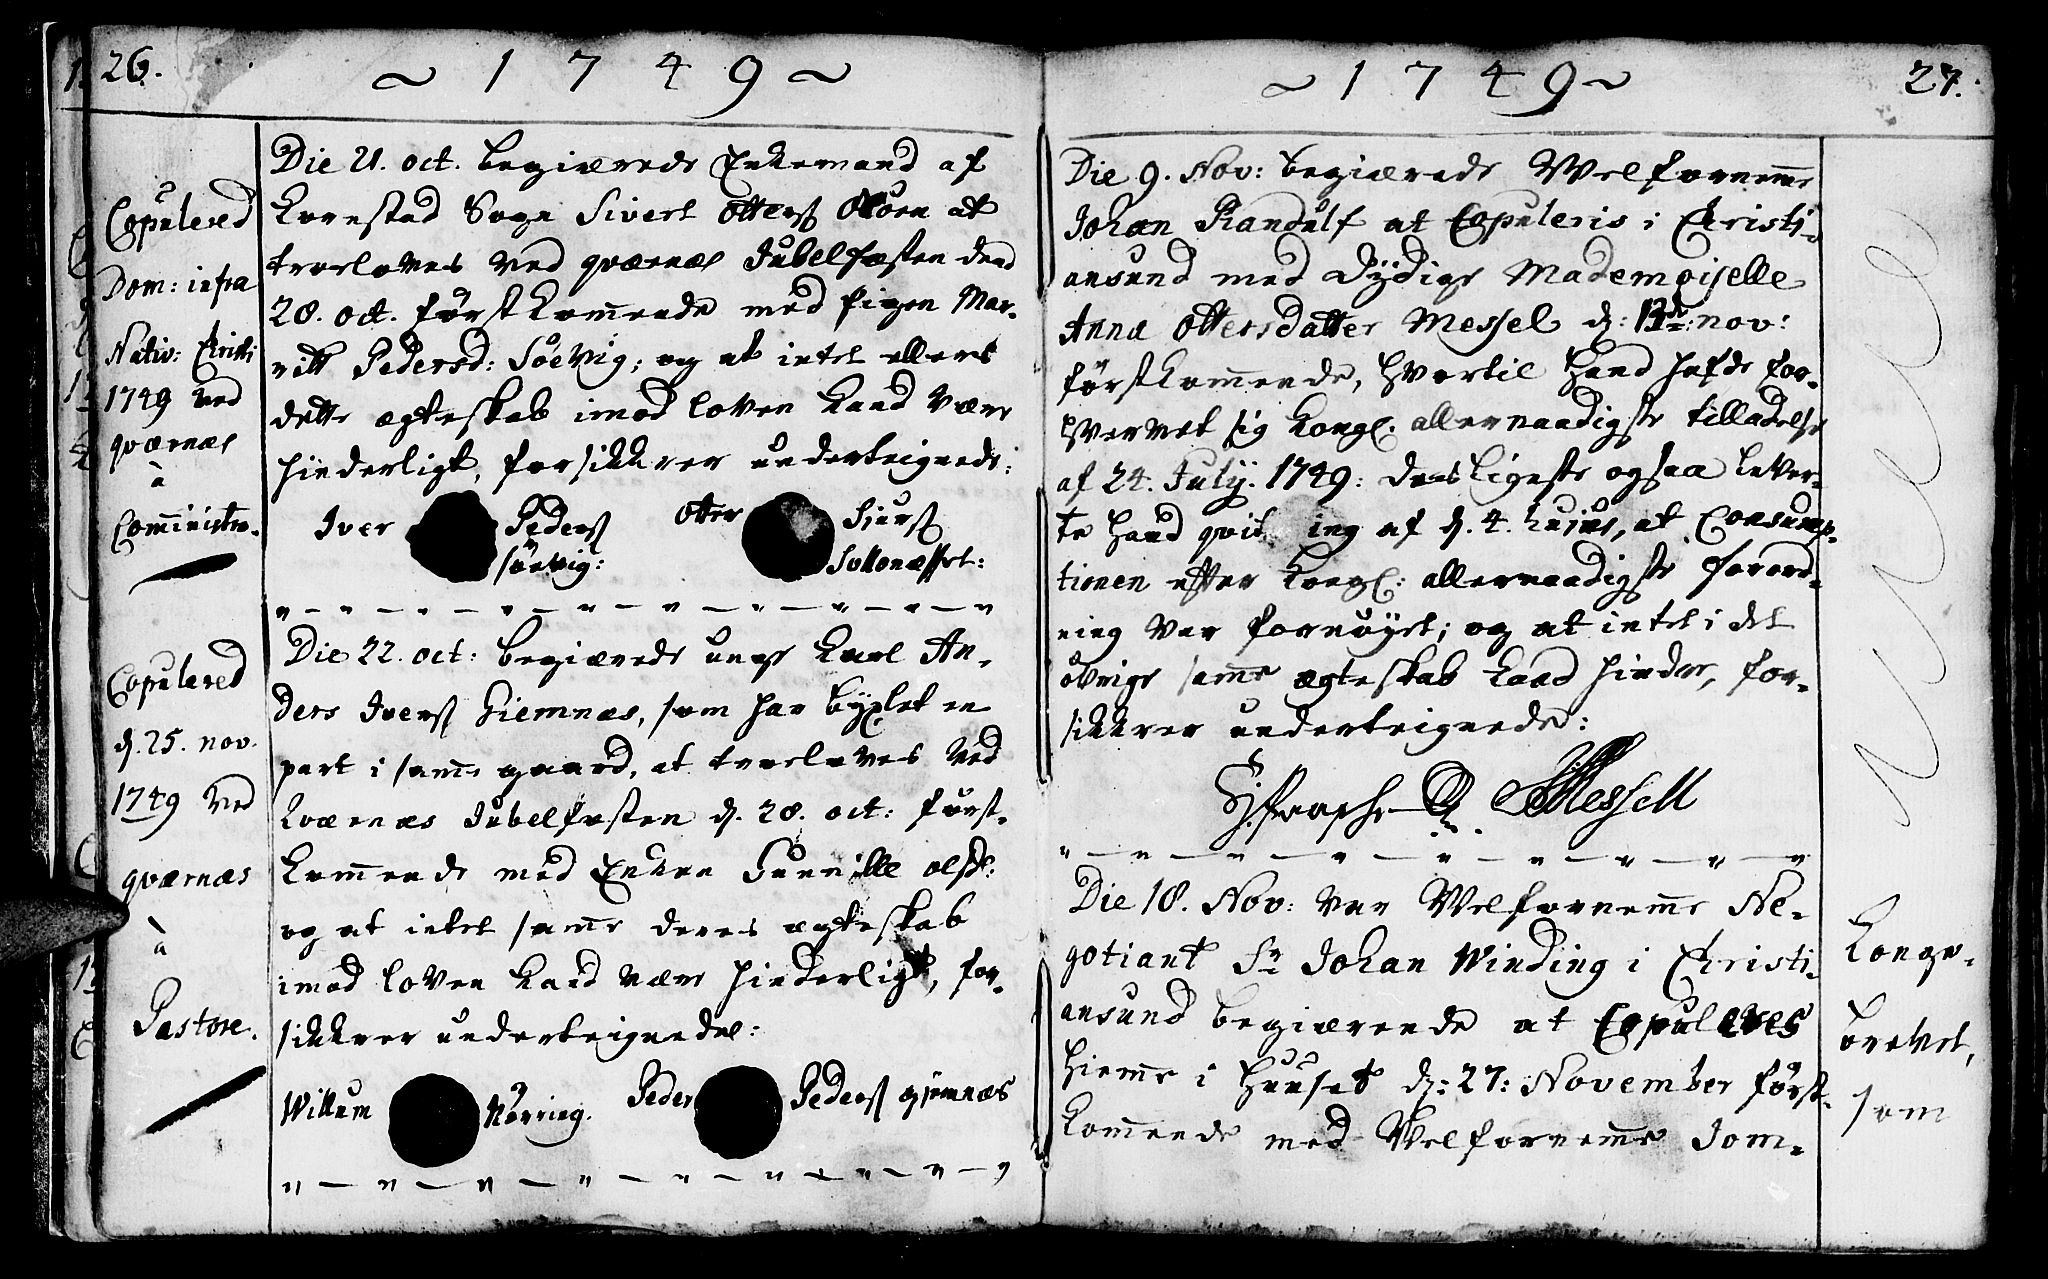 26.
~ 1 7 4 9 ~
Copulered
Dom: infra
Nativ: Christi
1749 ved
qværnæs
à
Cõministro.
Die 21. oct. begiærede Enkemand af
Kornstad Sogn Sivert Otters
troeloves ved qværnæs Jubelfæsten dend
28. oct. først kom̃ende med Pigen Mar-
ritt Pedersd: Söevig; og at intet ellers
dette ægteskab imod loven kand være
hinderligt, forsikkrer undertegnede:
Iver Peders Otter Siurs
sörvig:
Copulered
d. 25. nov.
1749 ved
qværnæs
à
Pastore.
Die 22. oct: begiærede unge Karl An-
ders Ivers Giemnæs, som har byxlet en
part i sam̃e gaard, at troeloves ved
kværnæs Jubelfesten d. 28. oct: först-
kom̃ende med Enken Sunnille olsd:
og at intet sam̃e deres ægteskab
imod loven kand være hinderligt, for-
sikkrer undertegnede:
Willum Nörring. Peder Peders gjemnæs
27.
~ 1 7 4 9 ~
Die 9. Nov: begiærede Velfornem̃e
Johan Randulf at Copuleris i Christi-
ansund med dydige Mademoiselle
Anna Ottersdatter Messel d: 13de nov:
förstkom̃ende, hvortil hand hafde for-
hvervet sig kongl. allernaadigste tilladelse
af 24. July. 1749: desligeste ogsaa lever-
te hand qvit ing af d. 4. hujus, at Consump-
tionen efter kongl: allernaadigste forord-
ning var fornöyet; og at intet i det
övrige sam̃e ægteskab kand hindre, for-
sikkrer undertegnede:
Messell
Die 18. Nov: var Velfornem̃e Ne-
gotiant Sr Johan Winding i Christi-
ansund begiærende at Copuleres
hiem̃e i Huuset d: 27: November först-
kom̃ende med Velfornem̃e Jom-
Konge-
brevet,
som